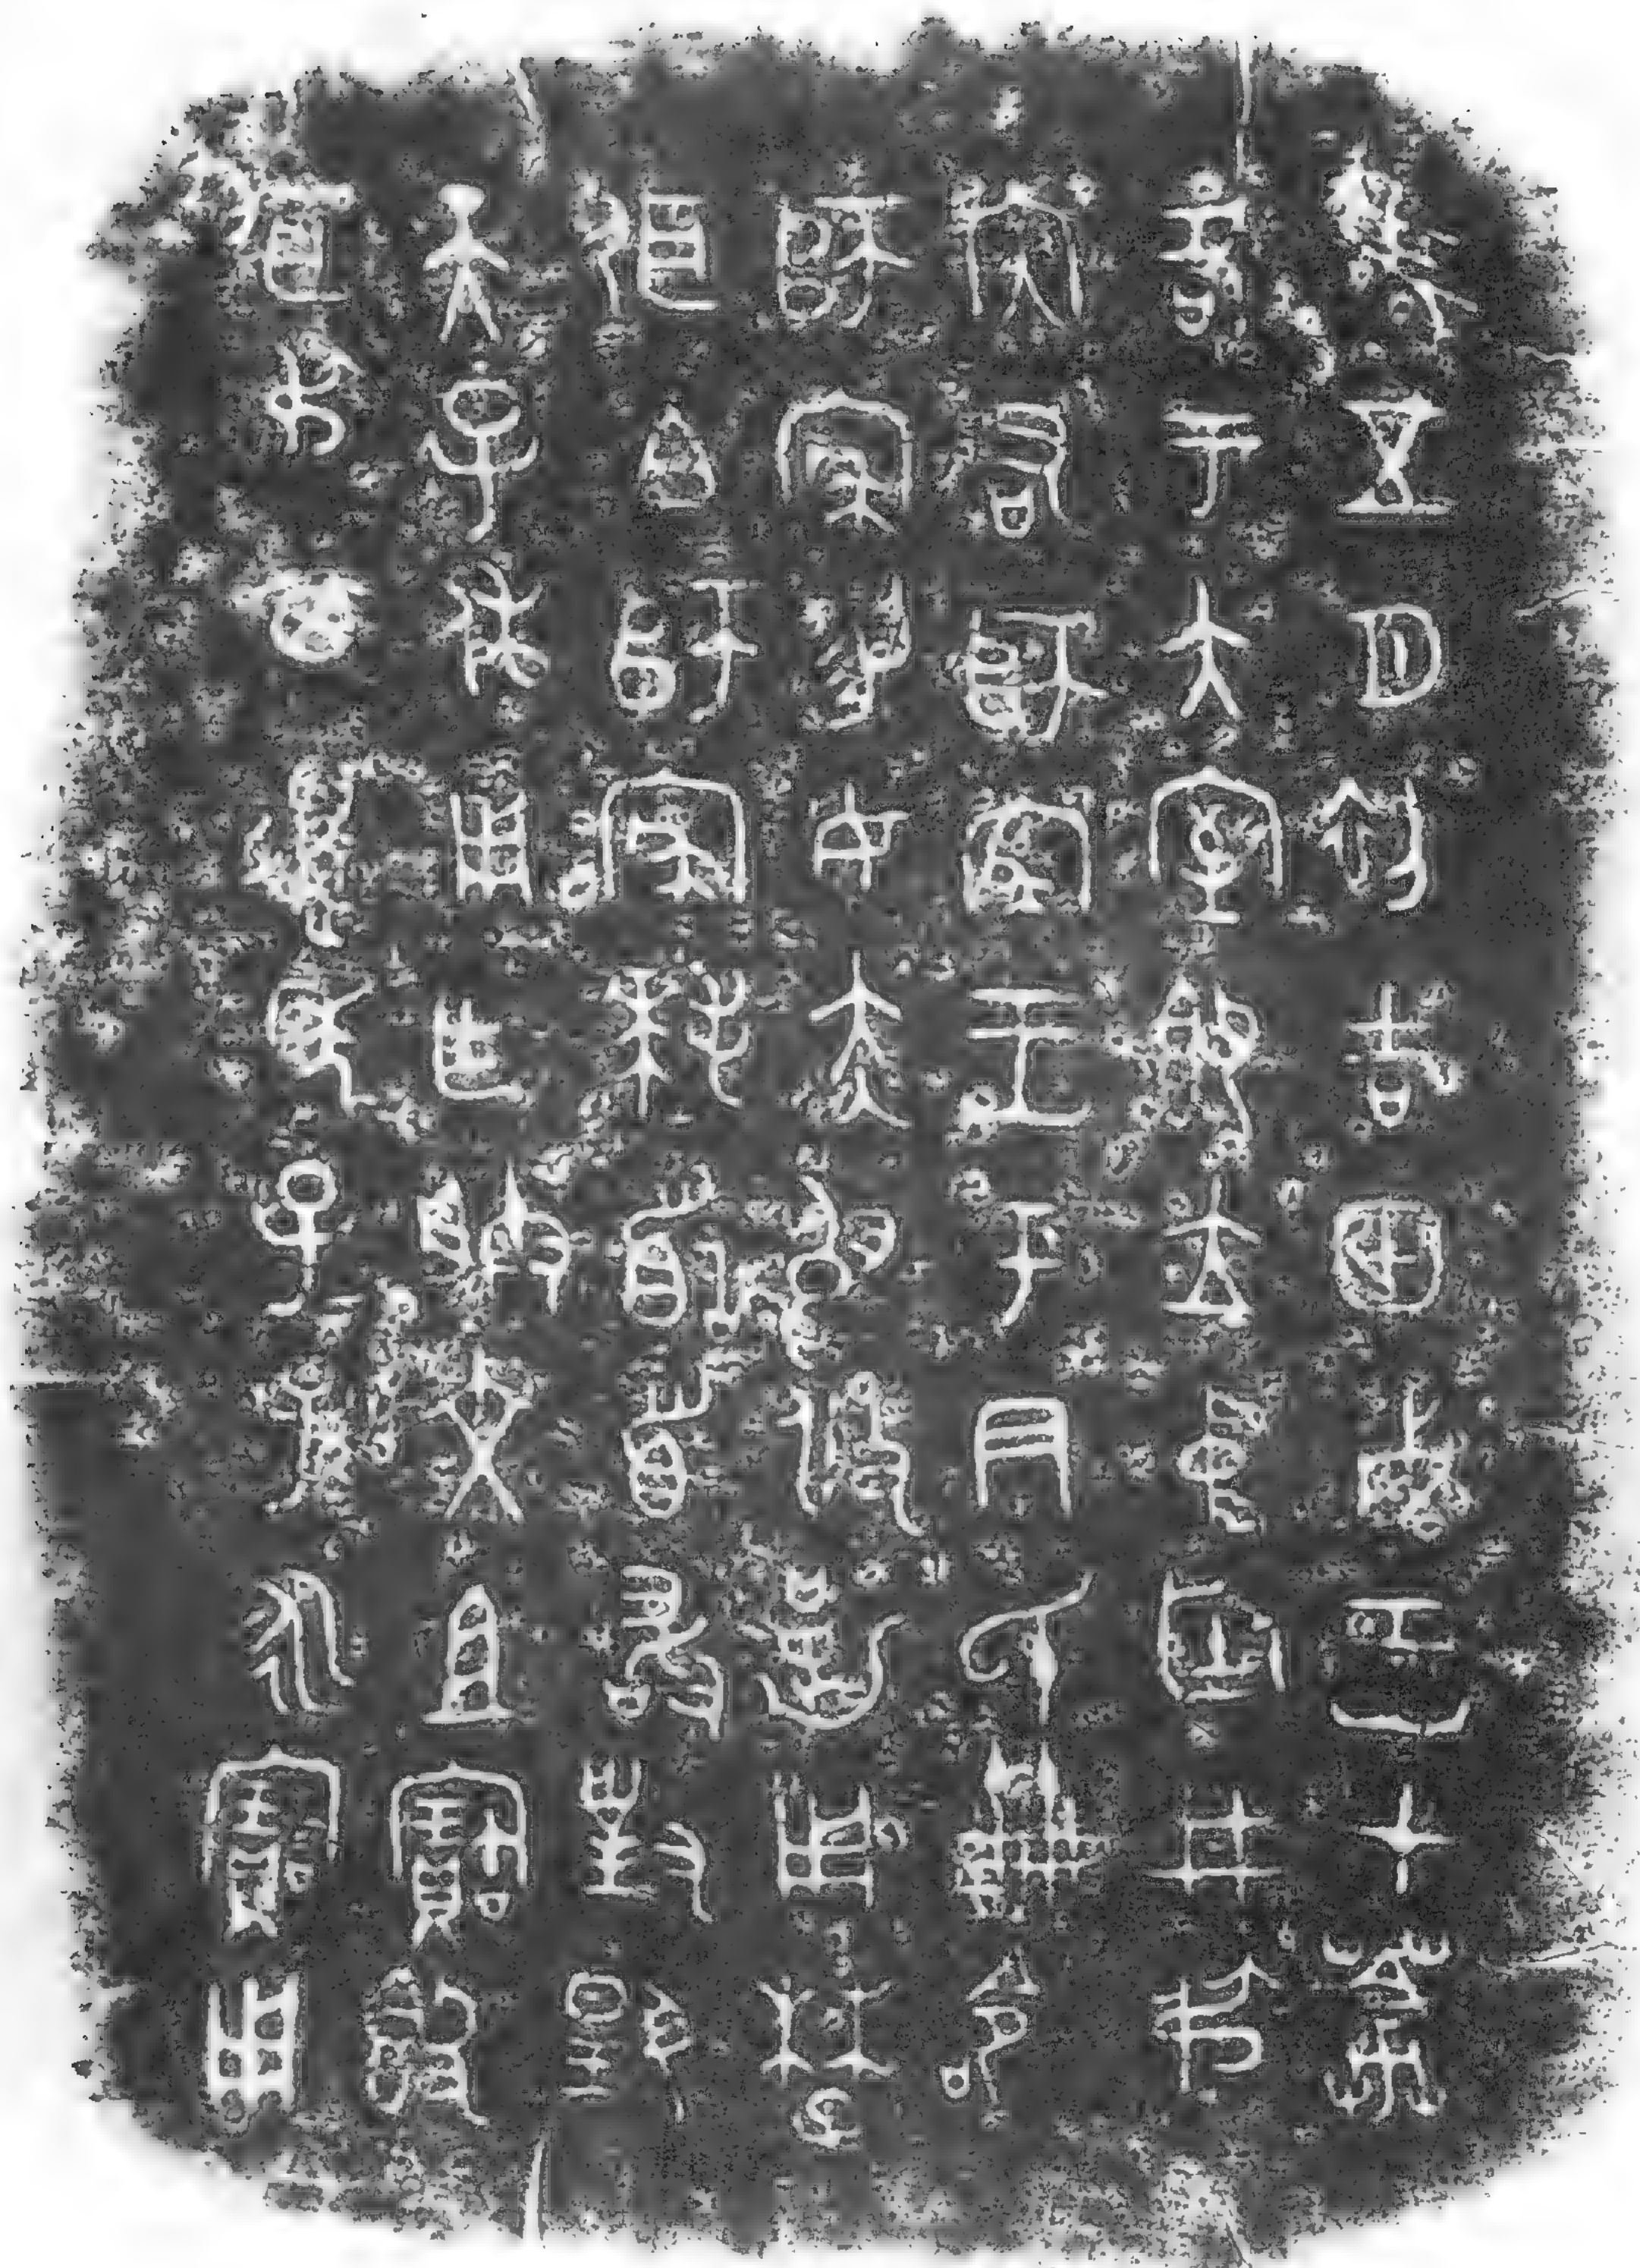 隹五月初吉甲戌王才葊
各于大室即立中廷井叔
內右師察王乎尹氏冊命
師察易女赤舄攸勒用楚
弭白師察拜𩒨首敢對揚
天子休用乍朕文且寶𣪘
弭叔其萬年子=孫=永寶用